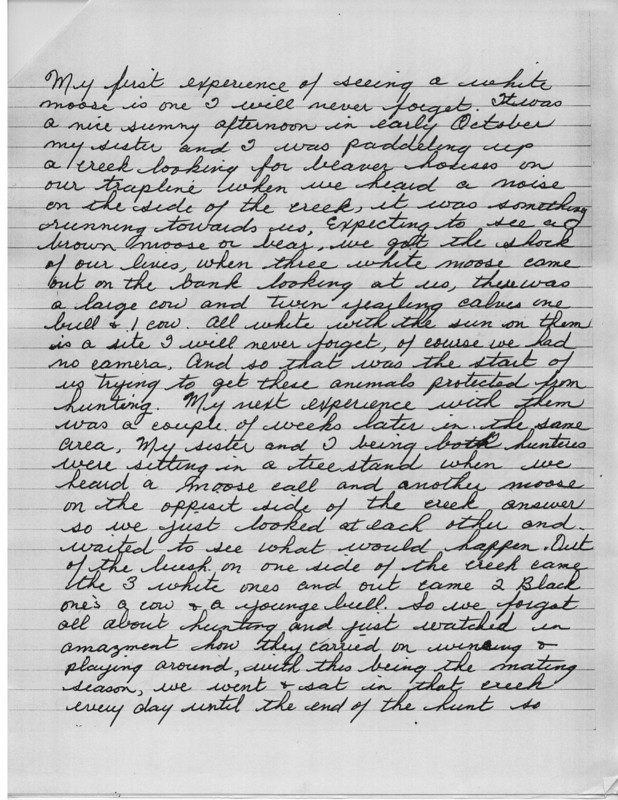 My first experience of seeing a white
moose is one I will never forget. It was
a nice sunny afternoon in early October
my sister and I was paddeling up
a creek looking for beaver houses on
our trapline when we heard a noise
on the side of the creek, it was something
running towards us, Expecting to see a
brown moose or bear, we got the shock
of our lives, when three white moose came
out on the bank looking at us, there was
a large cow and twin yearling calves one
bull & 1 cow. All white with the sun on them
is a site I will never forget, of course we had
no camera, And so that was the start of
us trying to get these animals protected from
hunting. My next experience with them
was a couple of weeks later in the same
area, My sister and I being both hunters
were sitting in a tree stand when we
heard a moose call and another moose
on the oppisit side of the creek answer
so we just looked at each other and
waited to see what would happen. Out
of the bush on one side of the creek came
the 3 white ones and out came 2 Black
one's a cow & a younge bull. So we forgot
all about hunting and just watched in
amazment how they carried on &
playing around, with this being the mating
season, we went & sat in that creek
every day until the end of the hunt so